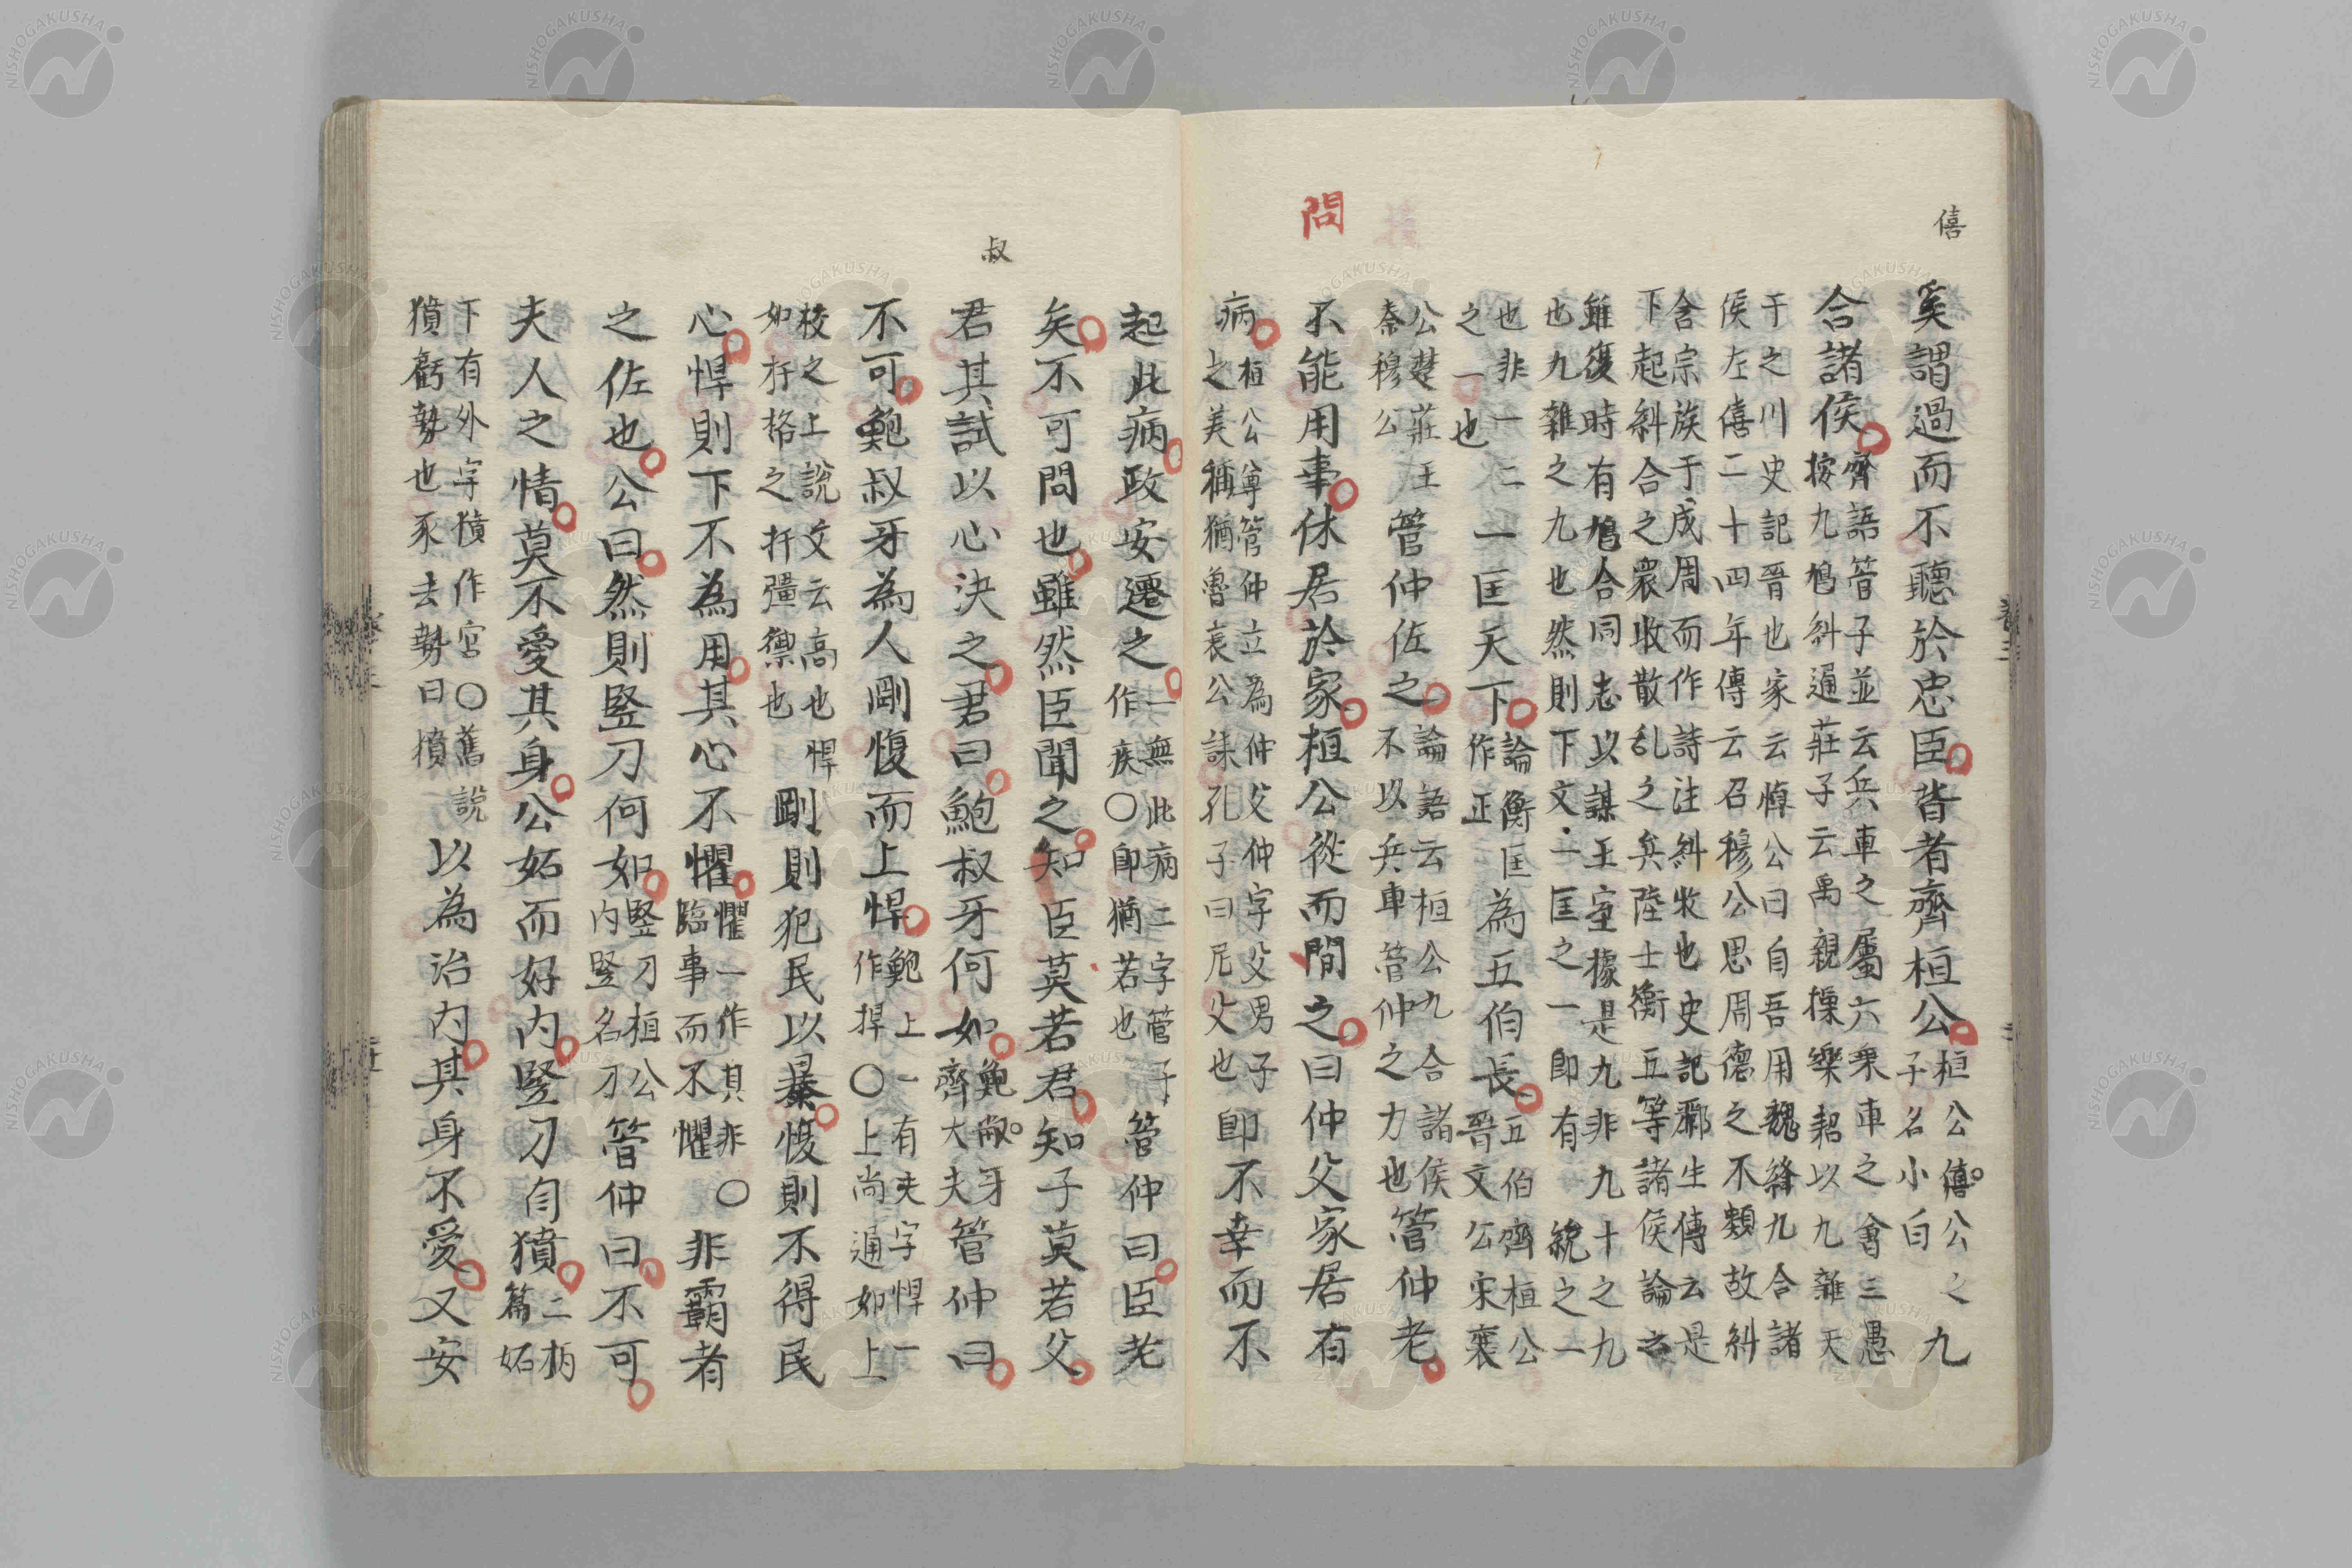 僖
奚謂過而不聽於忠臣昔者齊桓公桓公僖公之子名小白九
合諸侯齊語管子並云兵車之屬六乘車之會三愚
按九鳩糾通莊子云禹親操橐耜以九雜天
于之川史記晉世家云悼公曰自吾用魏絳九合諸
侯左僖二十四年傳云召穆公思周德之不類故糾
合宗族于成周而作詩注糾收也史記酈生傳云是
下起糾合之衆收散乱之兵陸士衡五等諸侯論云
雖復時有鳩合同志以謀王室據是九非九十之九
也九雜之九也然則下文一匡之一即有統之一
也非一二
之一也
一匡天下論衡匡作正為五伯長五伯齊桓公晉文公宋襄
公楚莊王秦穆公管仲佐之論語云桓公九合諸侯不以兵車管仲之力也管仲老
問
不能用事休居於家桓公從而問之曰仲父家居有
病桓公尊管仲立為仲父仲字父男子之美稱猶魯哀公誄孔子曰尼父也即不幸而不
起此病政安遷之一無此病二字管子作疾〇即猶若也管仲曰臣老
矣不可問也雖然臣聞之知臣莫若君知子莫若父
叔
君其試以心決之君曰鮑叔牙何如鮑叔牙齊大夫管仲曰
不可鮑叔牙為人剛愎而上悍鮑上一有夫字悍一作捍〇上尚通如上
校之上說文云高也悍
如扞格之扞彊禦也剛則犯民以暴愎則不得民
心悍則下不為用其心不懼懼一作具非〇臨事而不懼非霸者
之佐也公曰然則竪刀何如竪刀桓公內竪名刀管仲曰不可
夫人之情莫不愛其身公妬而好內竪刀自獖二柄篇妬
下有外字獖作宮〇舊說
獖虧勢也豕去勢曰獖以為治內其身不愛又安